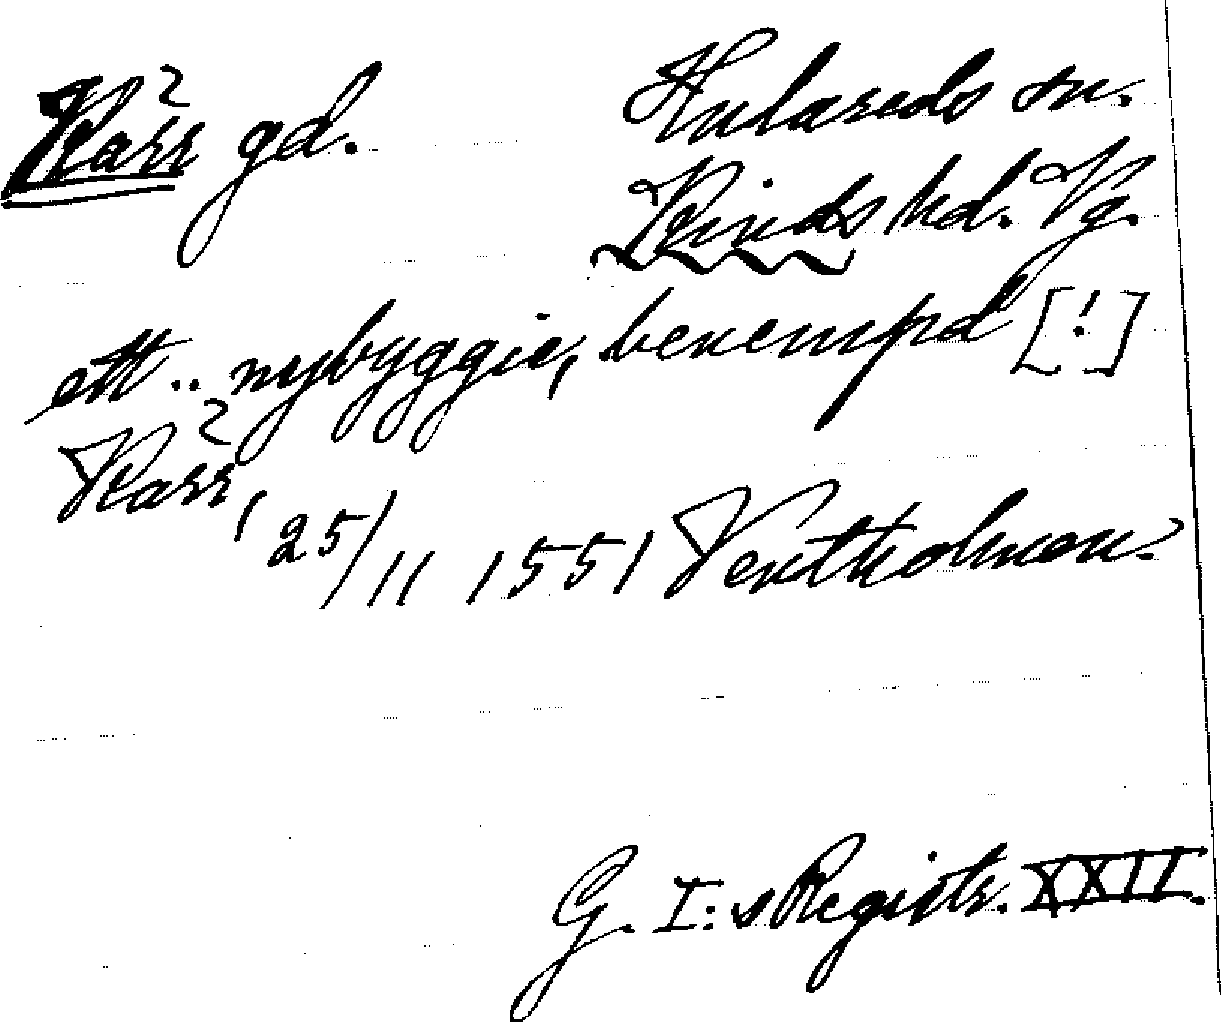 Kärr gd. Hulareds sn.
Kinds hd. Vg.
ett .. nybyggie, benempd [!]
Kärr, 25/11 1551 Ventholmen.
G. I:s Registr. XXII.